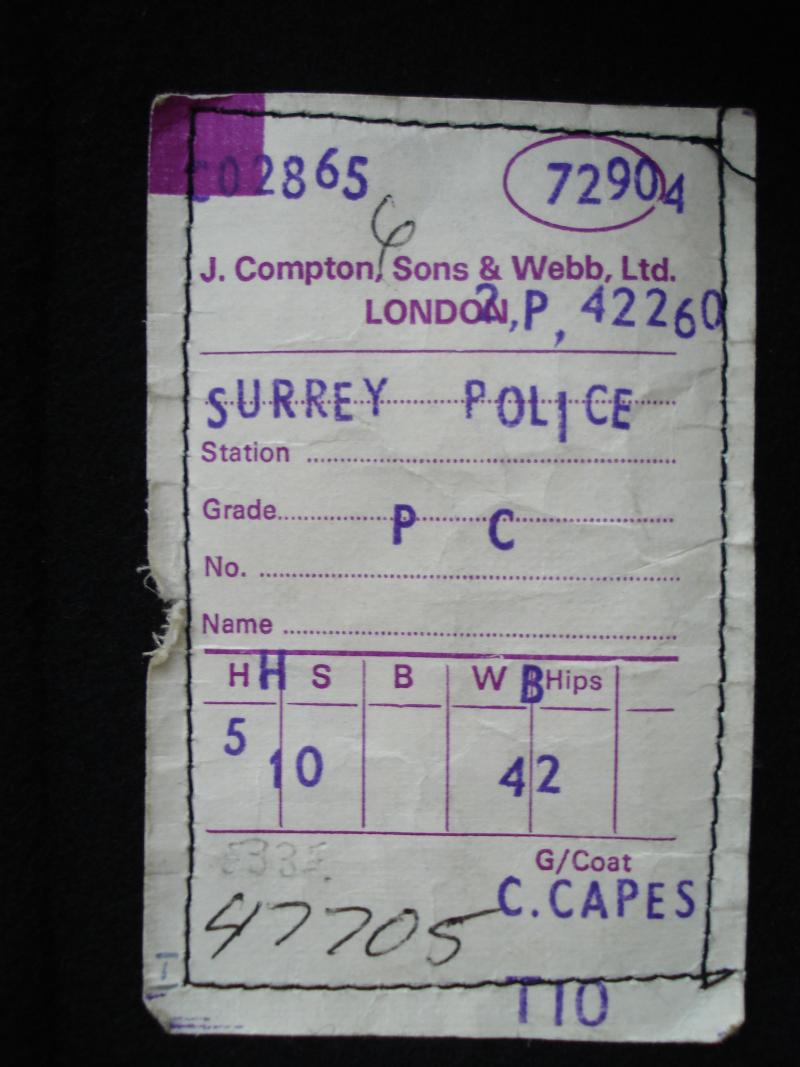 C02865 72904
6
J. Compton, Sons & Webb, Ltd.
LONDON, 2, P, 42260
SURREY POLICE
Station
Grade P C
No.
Name
H H S B W B Hips
5 10 42
G/Coat
C.CAPES
47705
T10